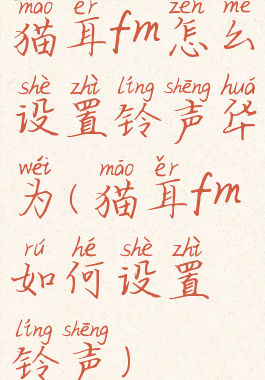 māo ěr zěn me
猫耳fm怎么
shè zhì líng shēng huá
设置铃声华
wéi māo ěr
为(猫耳fm
rú hé shè zhì
如何设置
líng shēng
铃声)